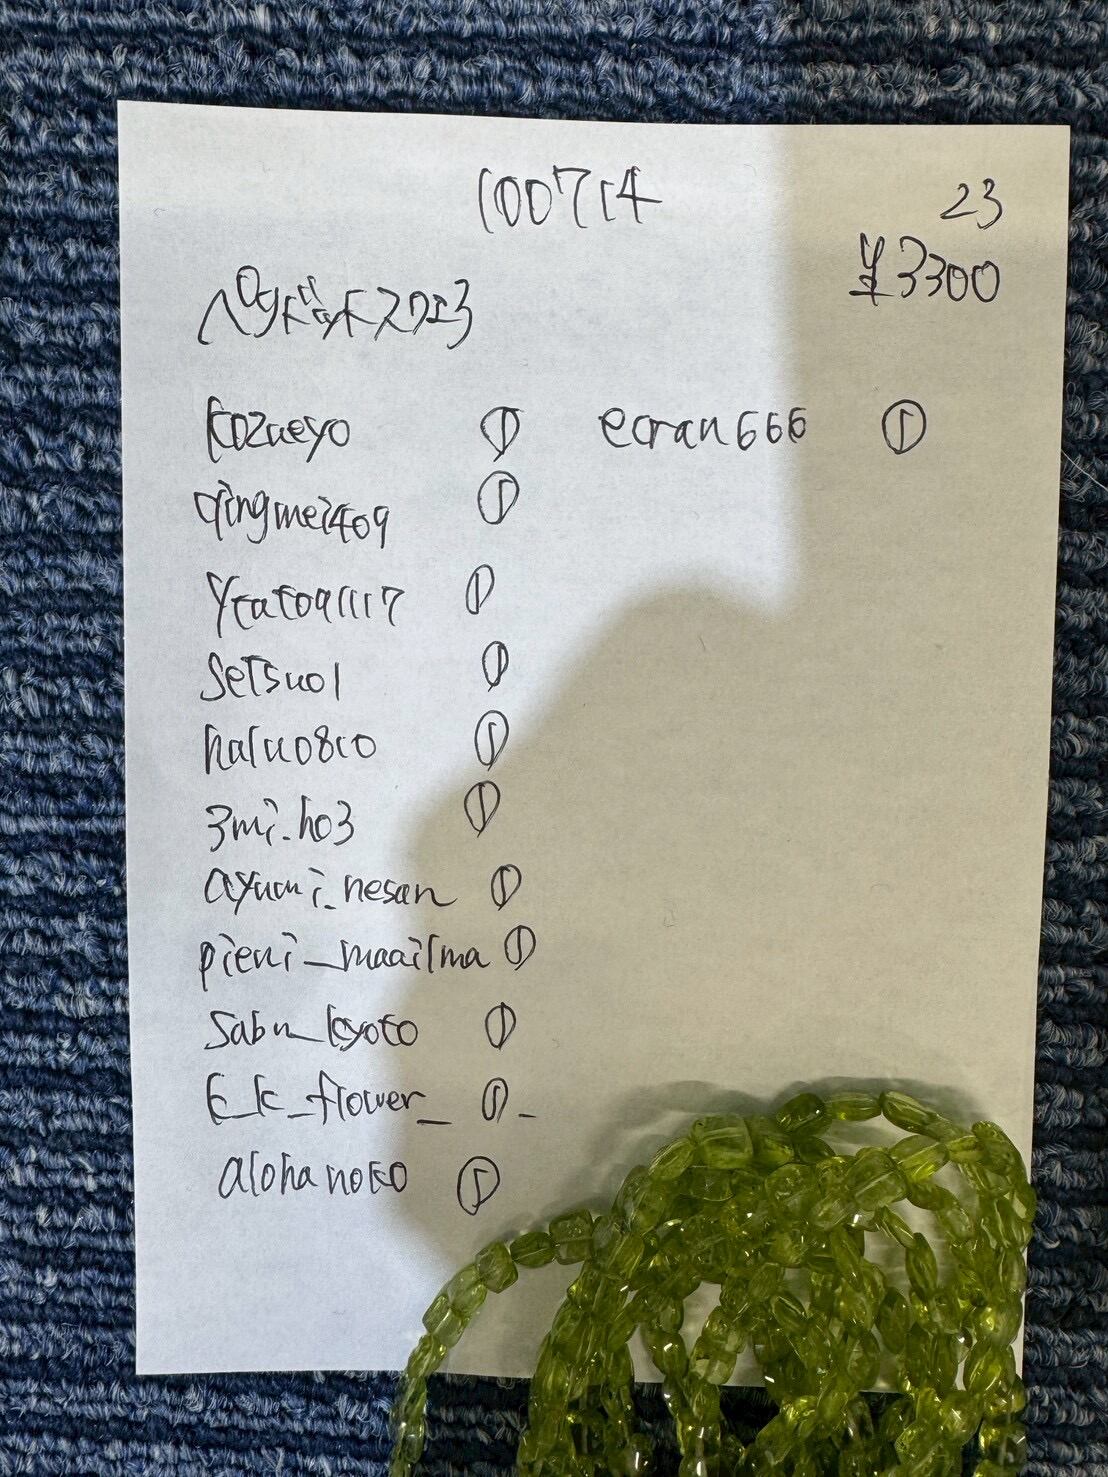 100714
23
¥3300
ペリドットスクエア
kozueyo ①
ecran666 ①
qingmei409 ①
ytat091117 ①
setsuo1 ①
haluo810 ①
3mi_ho3 ①
ayumi_nesan ①
pieni_maailma ①
sabu_kyoto ①
k_k_flower_ ①-
alohanoko ①